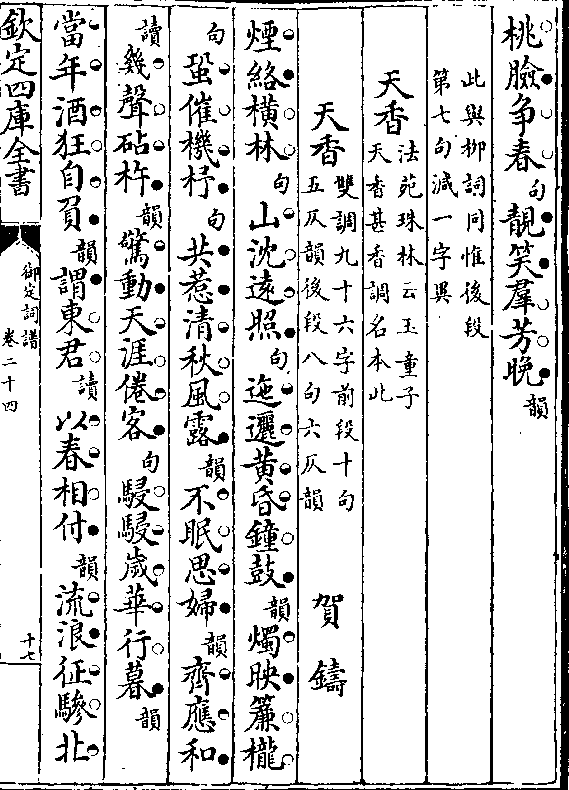 桃臉争春句靚笑羣芳晚韻
此與柳詞同惟後段
第七句減一字異
天香法苑珠林云玉童子
天香甚香調名本此
天香雙調九十六字前段十句
五仄韻後段八句六仄韻
賀鑄
煙絡横林句山沈遠照句迤邐黄昏鐘鼓韻燭映簾櫳
句蛩催機杼句共惹清秋風露韻不眠思婦韻齊應和
讀幾聲砧杵韻驚動天涯倦客句駸駸歲華行暮韻
當年酒狂自負韻謂東君讀以春相付韻流浪征驂北
欽定四庫全書
御定詞譜
卷二十四
十七